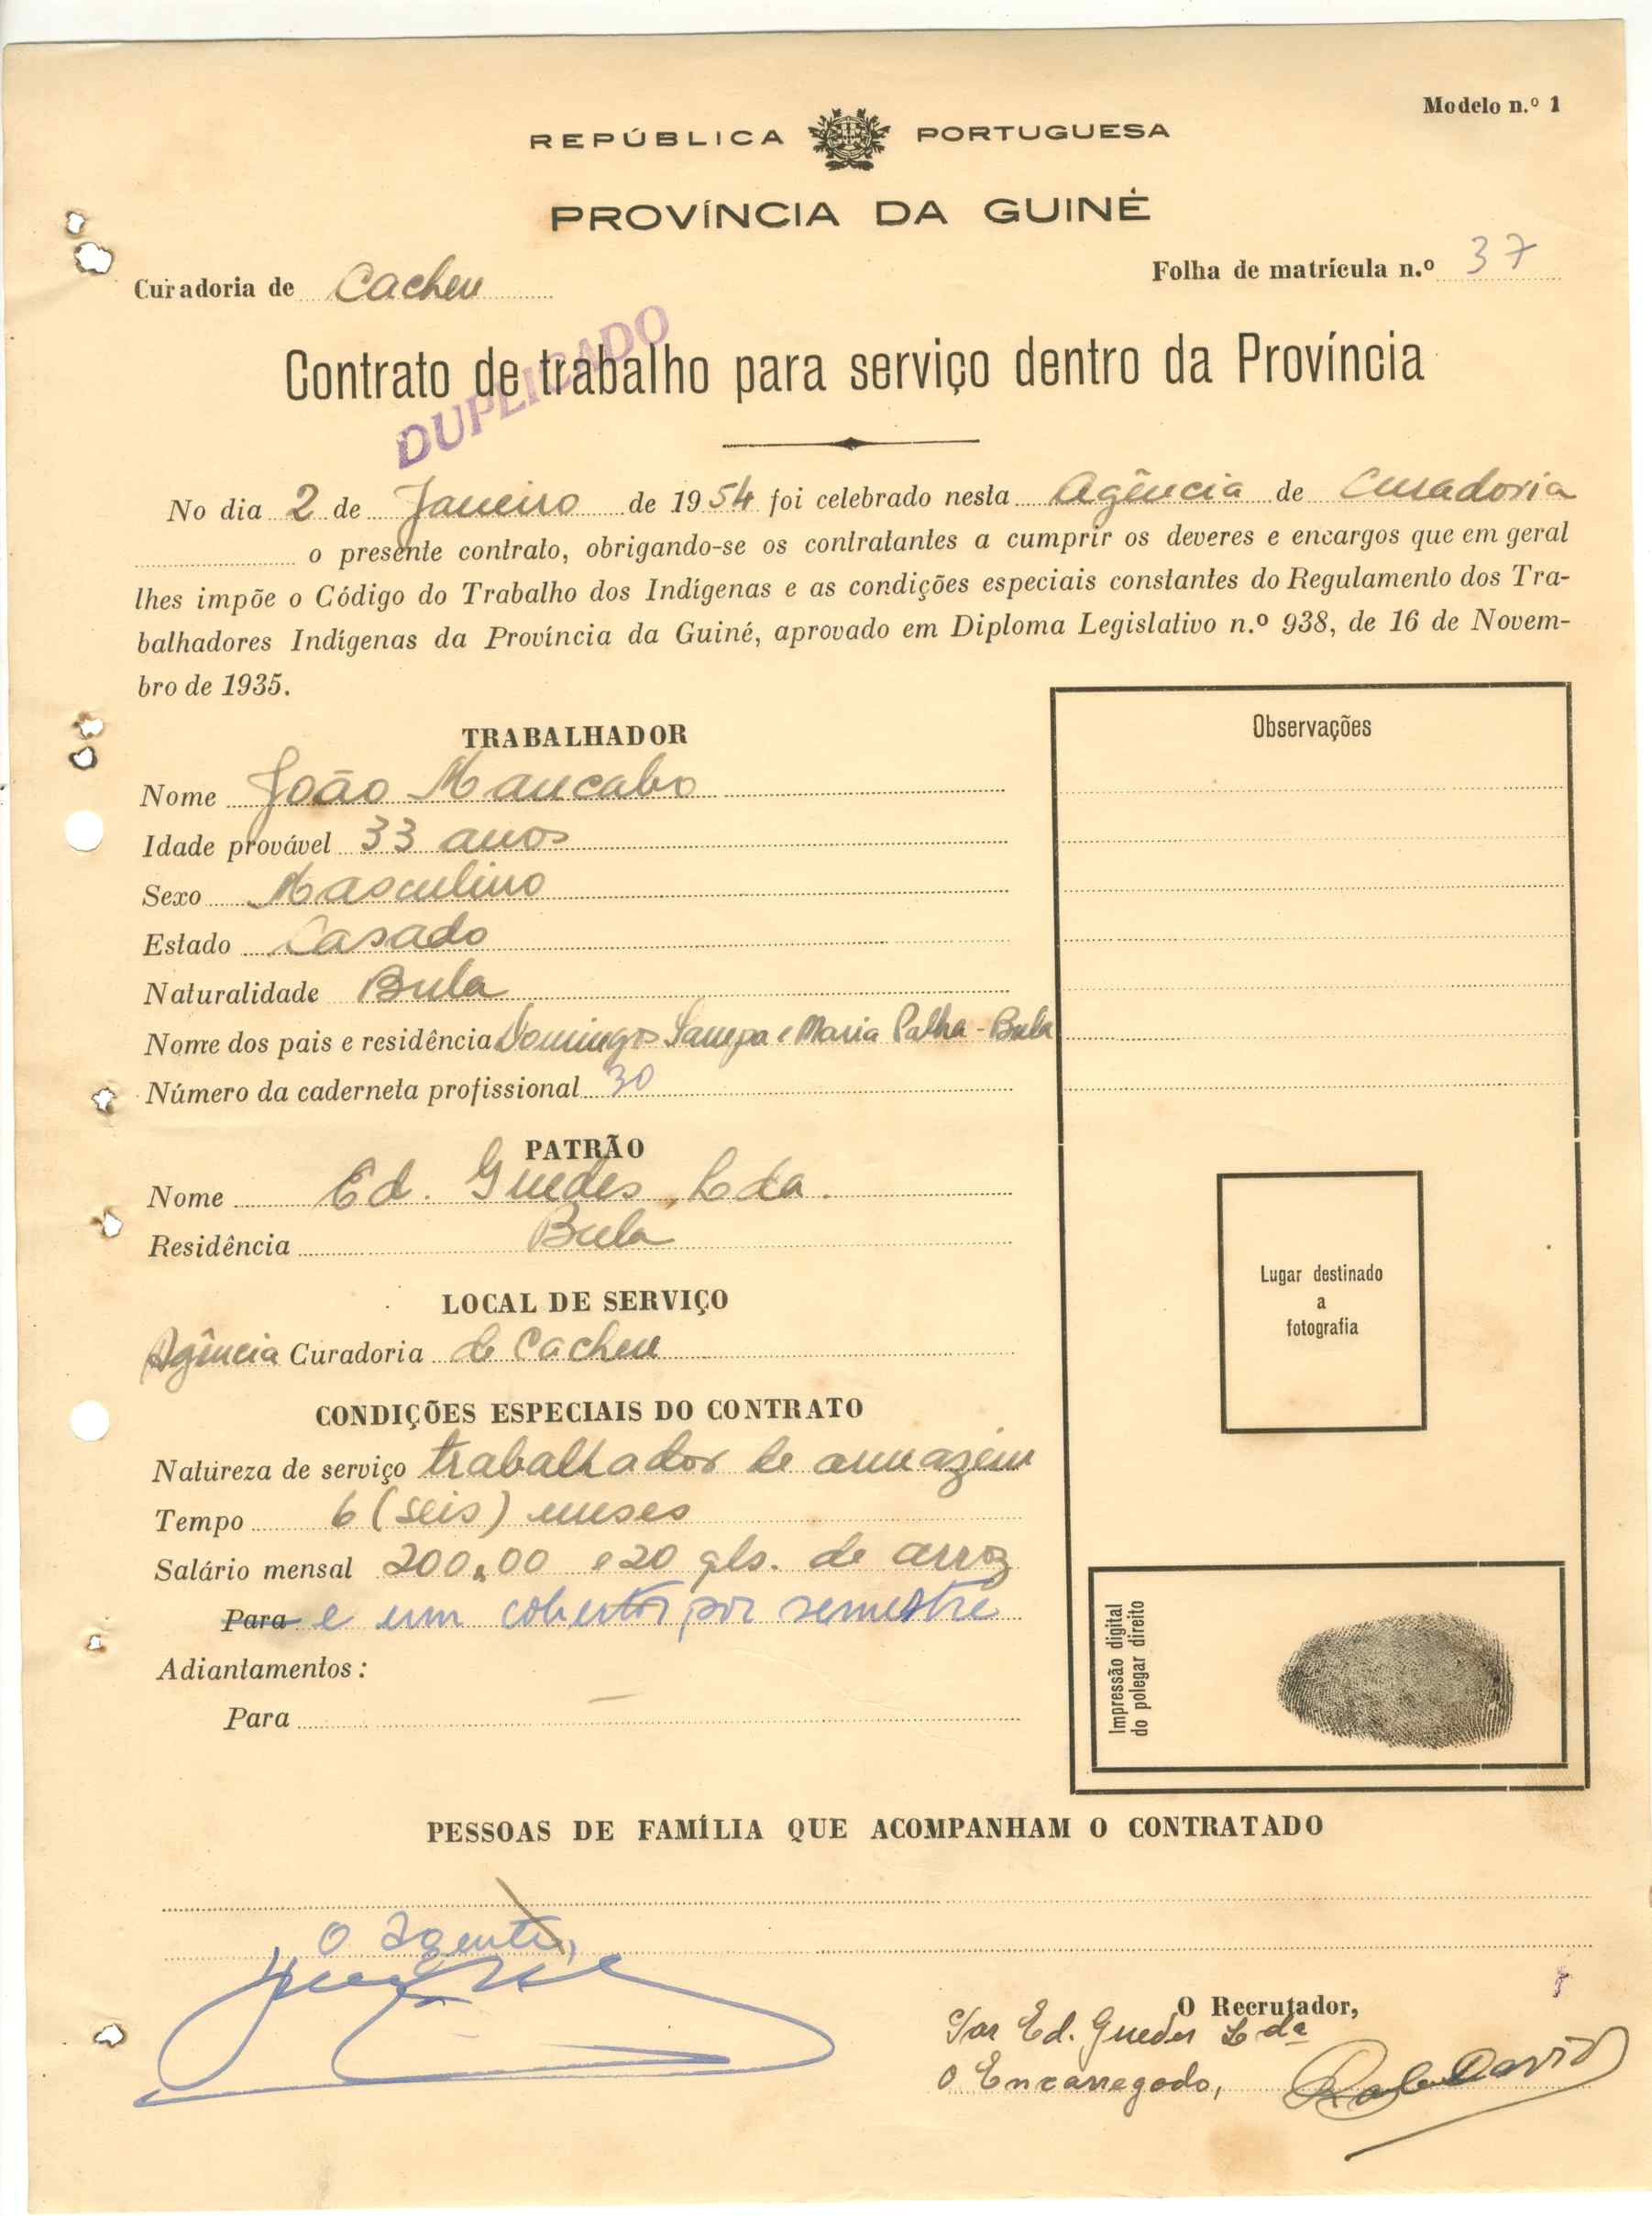 Modelo n.º 1
REPÚBLICA PORTUGUESA
PROVÍNCIA DA GUINÉ
Curadoria de Cacheu
Folha de matrícula n.º 37
DUPLICADO
Contrato de trabalho para serviço dentro da Província
No dia 2 de Janeiro de 1954 foi celebrado nesta Agência de Curadoria
o presente contrato, obrigando-se os contratantes a cumprir os deveres e encargos que em geral
lhes impõe o Código do Trabalho dos Indígenas e as condições especiais constantes do Regulamento dos Tra-
balhadores Indígenas da Província da Guiné, aprovado em Diploma Legislativo n.º 938, de 16 de Novem-
bro de 1935.
TRABALHADOR
Nome João Mancabo
Idade provável 33 anos
Sexo Masculino
Estado Casado
Naturalidade Bula
Nome dos pais e residência Domingos Sampa e Maria Palha - Bula
Número da caderneta profissional 30
PATRÃO
Nome Ed. Guedes, Lda.
Residência Bula
LOCAL DE SERVIÇO
Agência Curadoria de Cacheu
CONDIÇÕES ESPECIAIS DO CONTRATO
Natureza de serviço trabalhador de armazém
Tempo 6 (seis) meses
Salário mensal 200,00 e 20 qls. de arroz
Para e um cobertor por semestre
Adiantamentos:
Para —
Observações
Lugar destinado
a
fotografia
Impressão digital
do polegar direito
PESSOAS DE FAMÍLIA QUE ACOMPANHAM O CONTRATADO
O agente,
O Recrutador,
Por Ed. Guedes Lda
O Encarregado,
David